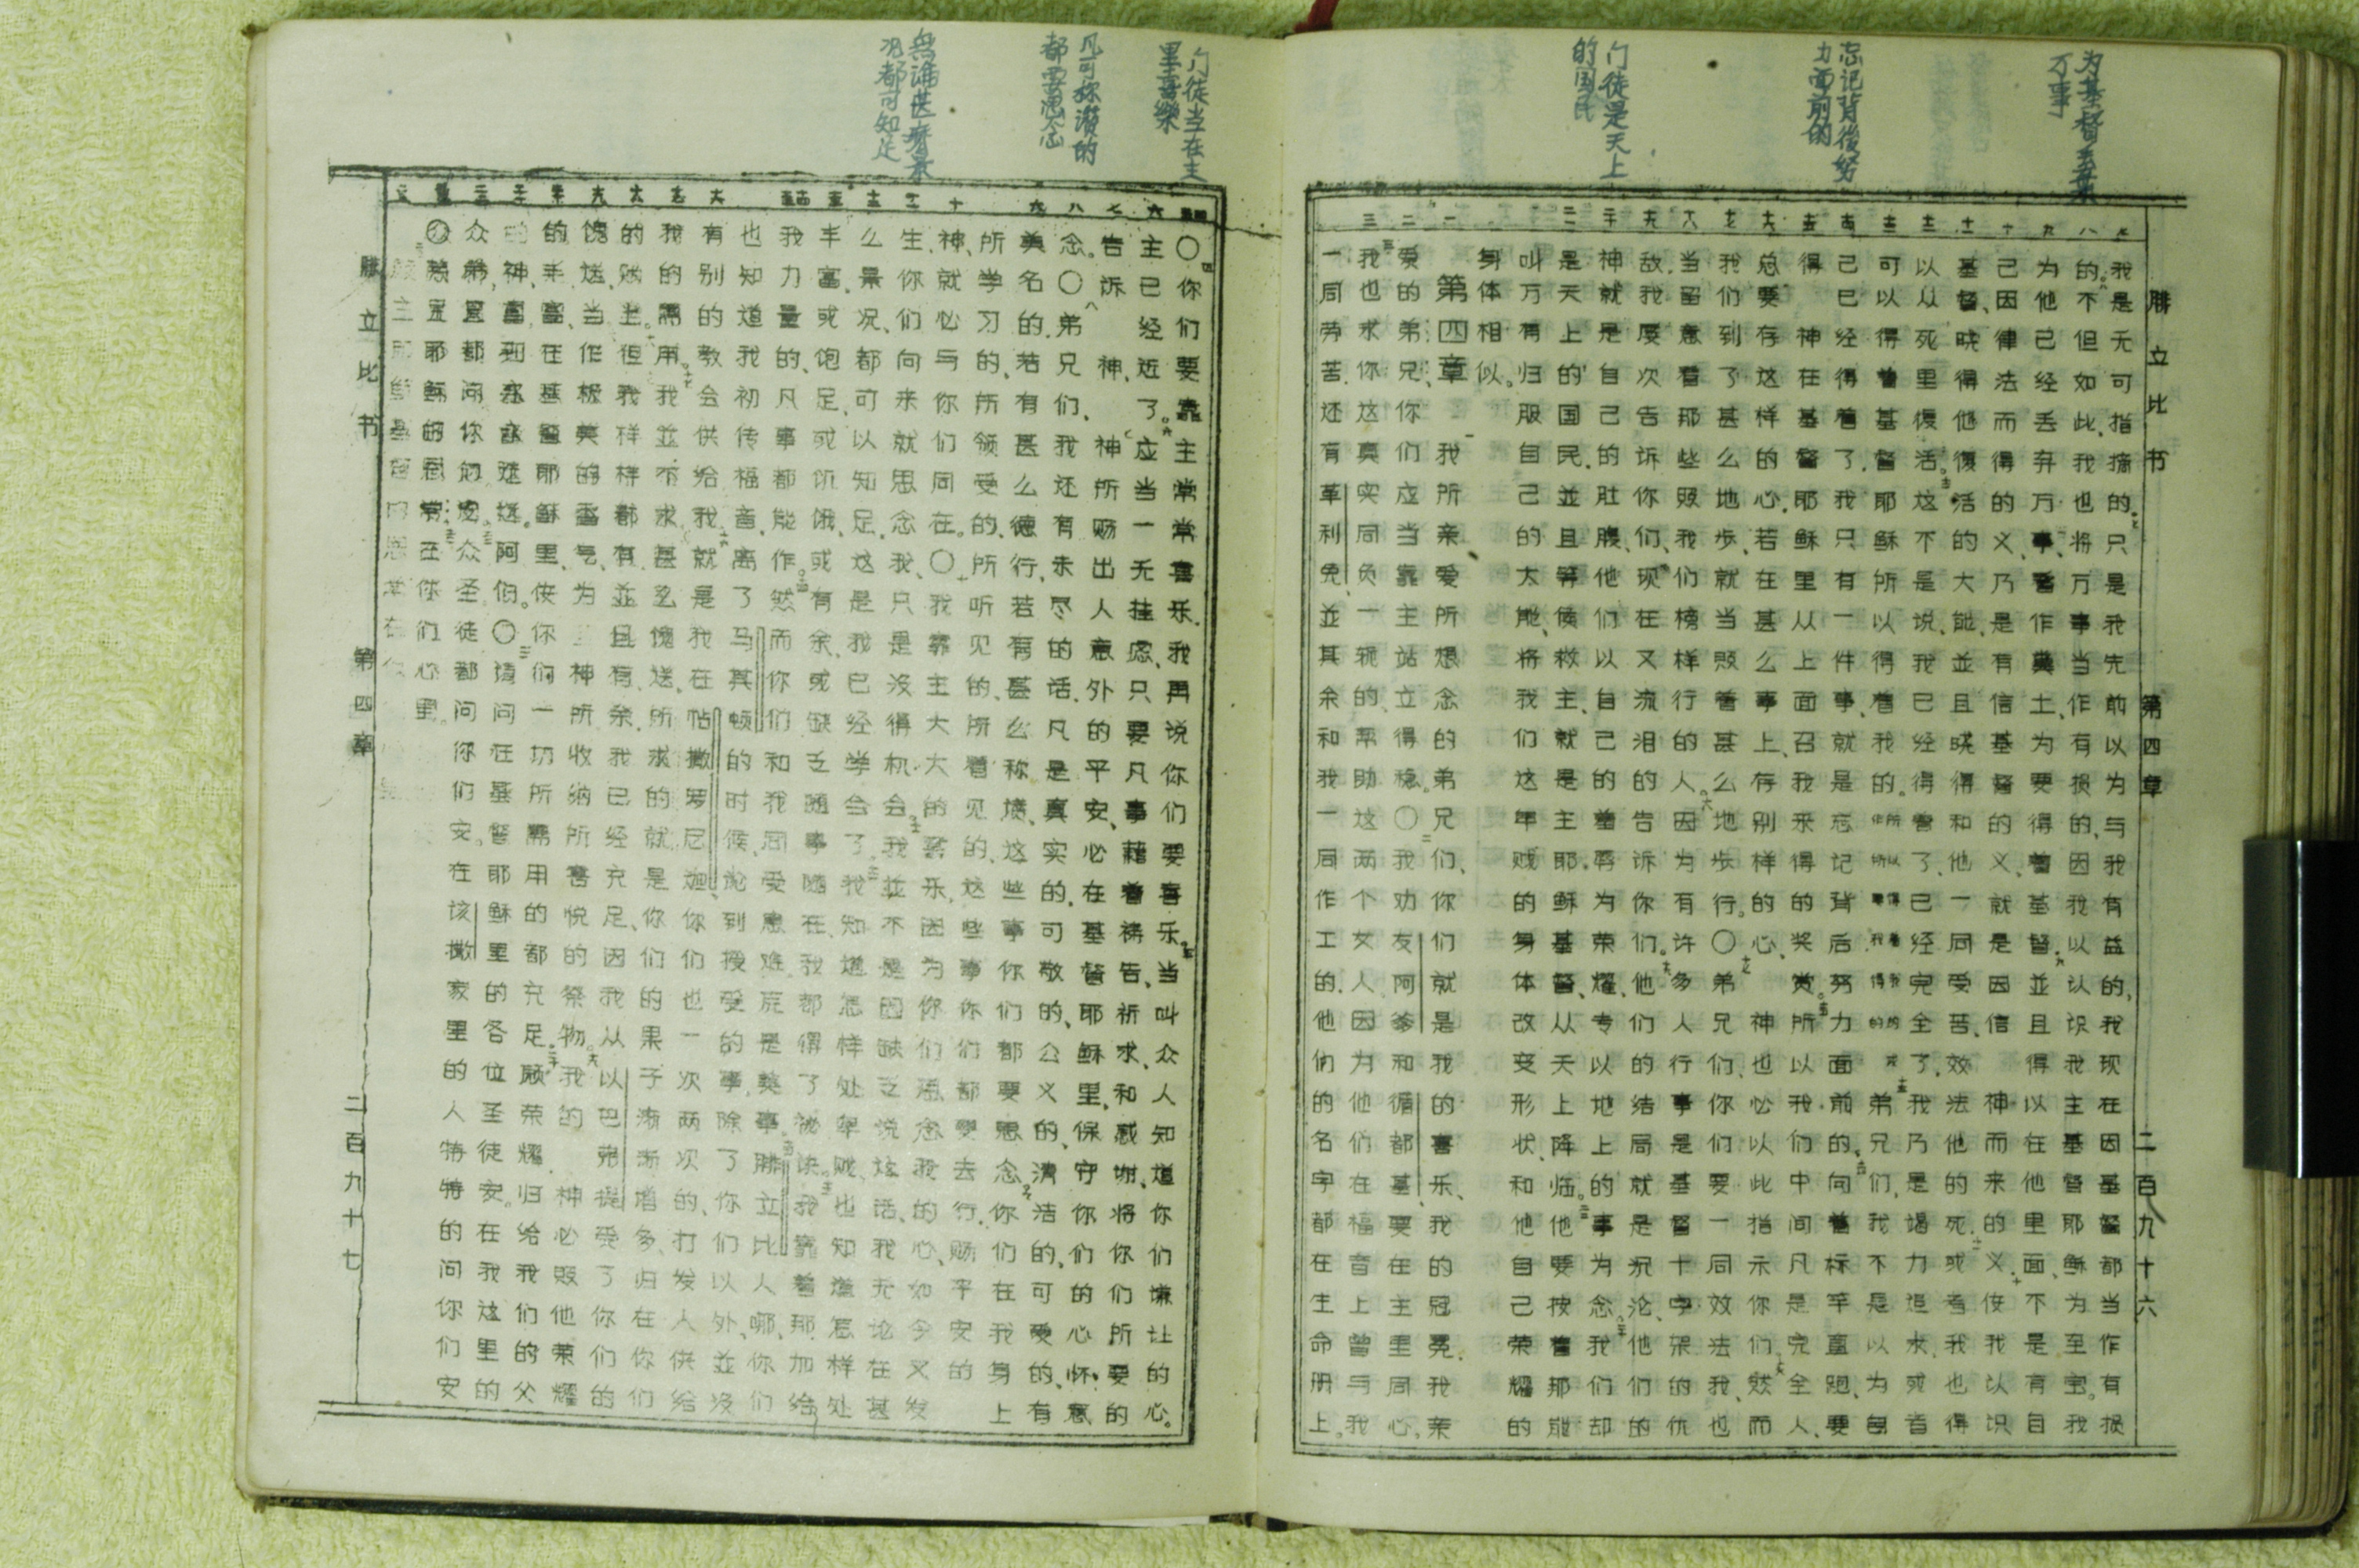 为基督丢弃
万事
忘记背後努
力面前的
门徒是天上
的国民
腓立比书 第四章 二百九十六
我是无可指摘的。只是我先前以为与我有益的、我现在因基督都当作有损
的。不但如此、我也将万事当作有损的、因我以认识我主基督耶稣为至宝。我
为他已经丢弃万事、看作粪土、为要得着基督、並且得以在他里面、不是有自
己因律法而得的义、乃是有信基督的义、就是因信神而来的义、使我以认识
基督、晓得他復活的大能、並且晓得和他一同受苦、效法他的死、或者我也得
以从死里復活。这不是说、我已经得着了、已经完全了、我乃是竭力追求、或者
可以得着基督耶稣所以得着我的。弟兄们、我不是以为自
己已经得着了、我只有一件事、就是忘记背后努力面前的、向着标竿直跑、要
得神在基督耶稣里从上面召我来得的奖赏。所以我们中间凡是完全人、
总要存这样的心、若在甚么事上、存别样的心、神也必以此指示你们、然而
我们到了甚么地步、就当照着甚么地步行。〇弟兄们、你们要一同效法我、也
当留意看那些照我们榜样行的人。因为有许多人行事是基督十字架的仇
敌、我屡次告诉你们、现在又流泪的告诉你们。他们的结局就是沉沦、他们的
神就是自己的肚腹、他们以自己的羞辱为荣耀、专以地上的事为念。我们却
是天上的国民、並且等候救主、就是主耶稣基督、从天上降临。他要按着那能
叫万有归服自己的大能、将我们这卑贱的身体改变形状、和他自己荣耀的
身体相似。
第四章
我所亲爱所想念的弟兄们、你们就是我的喜乐、我的冠冕、我亲
爱的弟兄、你们应当靠主站立得稳。〇我劝友阿爹和循都基、要在主里同心。
我也求你这真实同负一轭的、帮助这两个女人、因为他们在福音上曾与我
一同劳苦、还有革利免並其余和我一同作工的、他们的名字都在生命册上。
门徒当在主
里喜樂
凡可称讚的
都要思念
無論甚麼景
况都可知足
〇你们要靠主常常喜乐、我再说你们要喜乐。当叫众人知道你们谦让的心。
主已经近了。应当一无挂虑、只要凡事藉着祷告、祈求、和感谢、将你们所要的
告诉神、神所赐出人意外的平安、必在基督耶稣里、保守你们的心怀意
念。〇弟兄们、我还有未尽的话、凡是真实的、可敬的、公义的、清洁的、可爱的、有
美名的、若有甚么德行、若有甚么称赞、这些事你们都要思念、你们在我身上
所学习的、所领受的、所听见的、所看见的、这些事你们都要去行、赐平安的
神、就必与你们同在。〇我靠主大大的喜乐、因为你们思念我的心、如今又发
生、你们向来就思念我、只是没得机会。我並不是因缺乏说这话、我无论在甚
么景况、都可以知足、这是我已经学会了。我知道怎样处卑贱、也知道怎样处
丰富、或饱足、或饥饿、或有余、或缺乏、随事随在、我都得了秘诀。我靠着那加给
我力量的、凡事都能作。然而你们和我同受患难、原是美事。腓立比人哪、你们
也知道我初传福音、离了马其顿的时候、论到授受的事、除了你们以外、並没
有别的教会供给我、就是我在帖撒罗尼迦、你们也一次两次的、打发人供给
我的需用。我並不求甚么馈送、所求的就是你们的果子渐渐增多、归在你们
的账上。但我样样都有、並且有余、我已经充足、因我从以巴弗提受了你们的
馈送、当作极美的香气、为神所收纳所喜悦的祭物。我的神必照他荣耀的
丰富、在基督耶稣里、使你们一切所需用的都充足。愿荣耀归给我们的父
神、直到永永远远、阿们。〇请问在基督耶稣里的各位圣徒安。在我这里的
众弟兄都问你们安。众圣徒都问你们安。在该撒家里的人特特的问你们安。
愿主耶稣的恩常在你们心里。
腓立比书 第四章 二百九十七